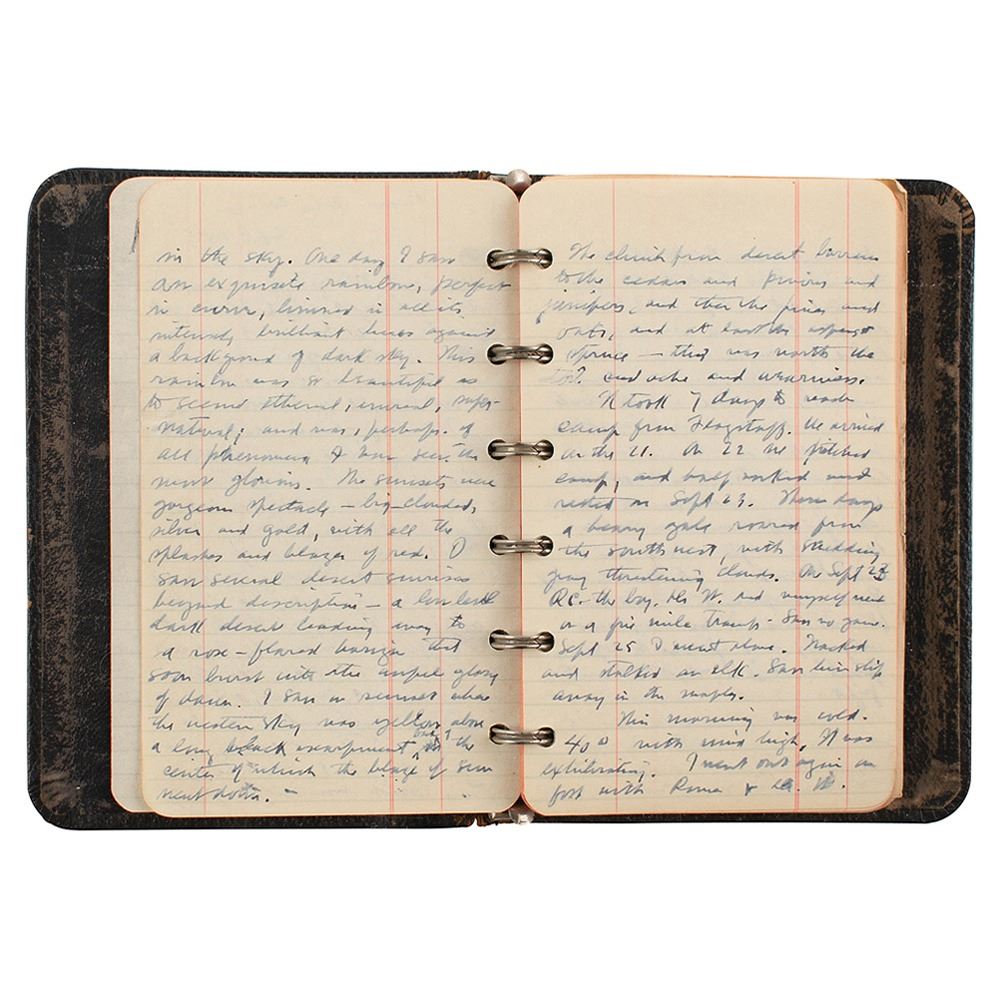 in the sky. One day I saw
an exquisite rainbow, perfect
in curve, limned in all its
intensely brilliant hues against
a background of dark sky. This
rainbow was so beautiful as
to seem ethereal, unreal, super-
natural; and was, perhaps, of
all phenomena I have seen the
more glorious. The sunsets were
gorgeous spectacles – big-clouded,
silver and gold, with all the
splashes and blazes of red. I
saw several desert sunrises
beyond description – a low level
dark desert leading away to
a rose-flared horizon that
soon burst with the glory
of dawn. I saw a sunset when
the western sky was yellow above
a long black escarpment, the
center of which the blaze of sun
went down. –
The climb from desert barrens
to the cedars and pinions and
junipers, and then the pines and
oaks, and at last the
spruce – that was worth the
and ache and weariness.
It took 7 days to reach
camp from Flagstaff. We arrived
on the 21. On 22 we pitched
camp, and half worked and
rested on Sept 23. Three days
a heavy gale roared from
the southwest, with scudding
gray threatening clouds. On Sept
R.C. the boy, Dr W. and myself went
on a five mile tramp – Saw no game.
Sept 25 I went alone. Tracked
and stalked an elk. Saw him slip
away in the maples.
This morning was cold.
40° with wind high. It was
exhilarating. I went out again on
foot with Romer & Dr. W.